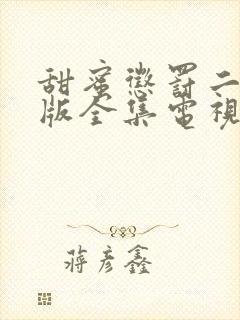 甜蜜懲罰二
版全集電視
蔣彥鑫